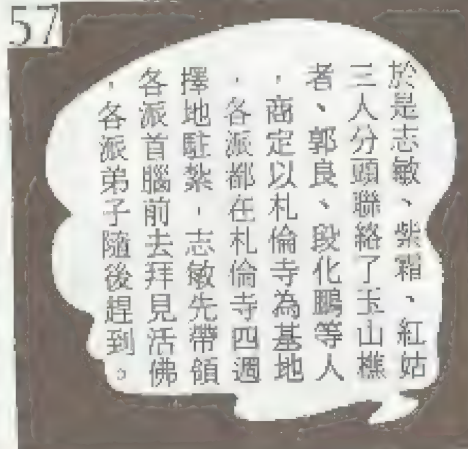 57
於是志敏、紫霜、紅姑
三人分頭聯絡了玉山樵
者、郭良、段化鵬等人
，商定以札倫寺為基地
，各派都在札倫寺四週
擇地駐紮，志敏先帶領
各派首腦前去拜見活佛
，各派弟子隨後趕到。